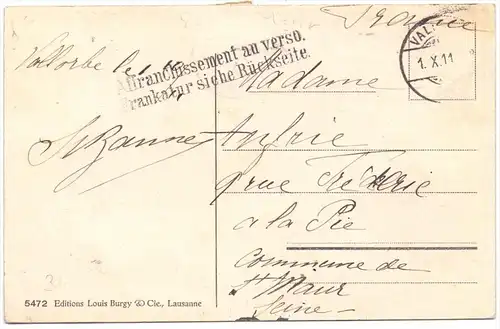 France
Vallorbe le
Affranchissement au verso.
Frankatur siehe Rückseite.
VAL
1.X.11
Madame
Suzanne
rue Fréderic
a la Pie
Commune de
St Maur
Seine
5472 Editions Louis Burgy & Cie., Lausanne